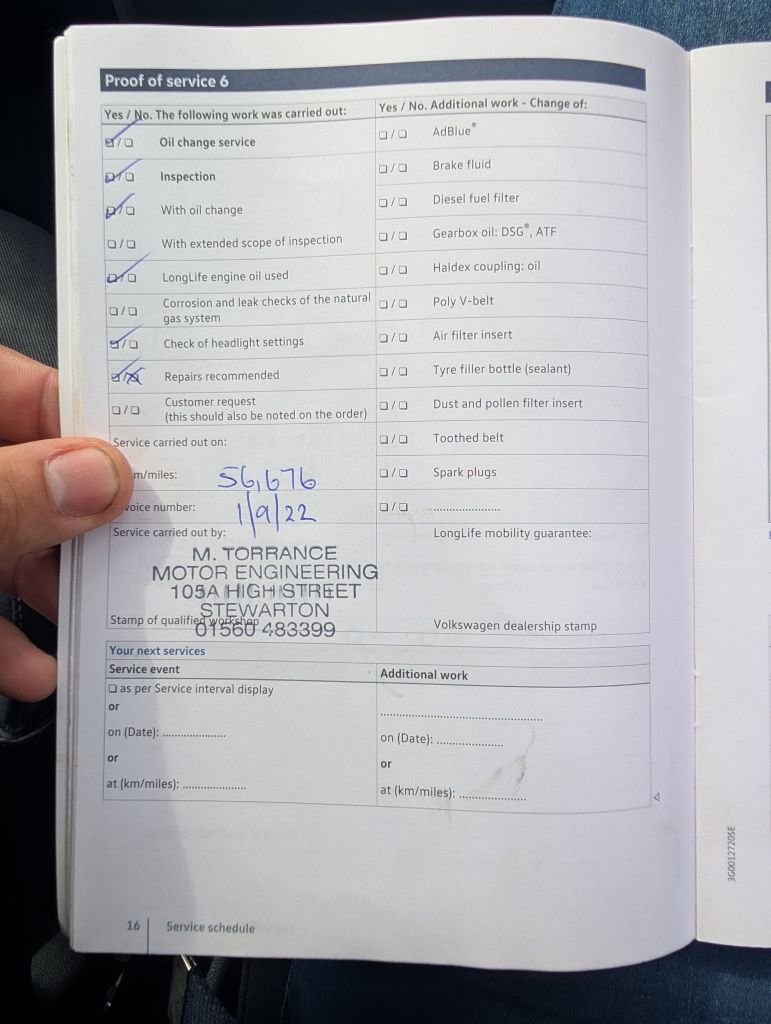 Proof of service 6
Yes / No. The following work was carried out:
Oil change service
Inspection
With oil change
With extended scope of inspection
LongLife engine oil used
Corrosion and leak checks of the natural
gas system
Check of headlight settings
Repairs recommended
Customer request
(this should also be noted on the order)
Service carried out on:
m/miles: 56,676
voice number: 1/9/22
Service carried out by:
M. TORRANCE
MOTOR ENGINEERING
105A HIGH STREET
STEWARTON
Stamp of qualified workshop
01560 483399
Yes / No. Additional work - Change of:
AdBlue®
Brake fluid
Diesel fuel filter
Gearbox oil: DSG®, ATF
Haldex coupling: oil
Poly V-belt
Air filter insert
Tyre filler bottle (sealant)
Dust and pollen filter insert
Toothed belt
Spark plugs
....................
LongLife mobility guarantee:
Volkswagen dealership stamp
Your next services
Service event
as per Service interval display
or
on (Date): ....................
or
at (km/miles): ....................
Additional work
..................................................
on (Date): ....................
or
at (km/miles): ....................
16 Service schedule
3G0012720SE